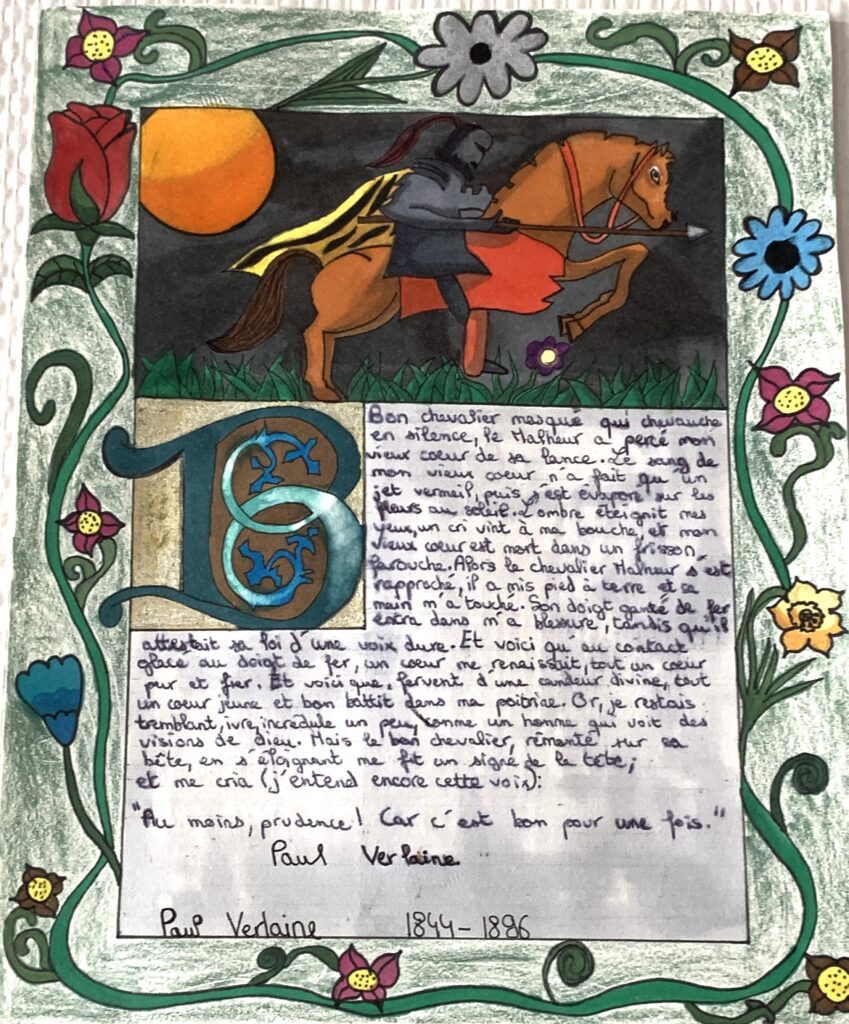 Bon chevalier masqué qui chevauche
en silence, le Malheur a percé mon
vieux coeur de sa lance. Le sang de
mon vieux coeur n'a fait qu'un
jet vermeil, puis s'est évaporé sur les
fleurs au soleil. L'ombre éteignit mes
yeux, un cri vint à ma bouche, et mon
vieux coeur est mort dans un frisson
farouche. Alors le chevalier Malheur s'est
rapproché, il a mis pied à terre et sa
main m'a touché. Son doigt ganté de fer
entra dans m'a blessure, tandis qu'il
attestait sa loi d'une voix dure. Et voici qu'au contact
glacé au doigt de fer, un coeur me renaissait, tout un coeur
pur et fier. Et voici que, fervent d'une candeur divine, tout
un coeur jeune et bon battit dans ma poitrine. Or, je restais
tremblant, ivre, incrédule un peu, comme un homme qui voit des
visions de dieu. Mais le bon chevalier, rémonté sur sa
bête, en s'éloignant me fit un signe de la tête;
et me cria (j'entend encore cette voix):
"Au moins, prudence! Car c'est bon pour une fois."
Paul Verlaine
Paul Verlaine 1844-1896